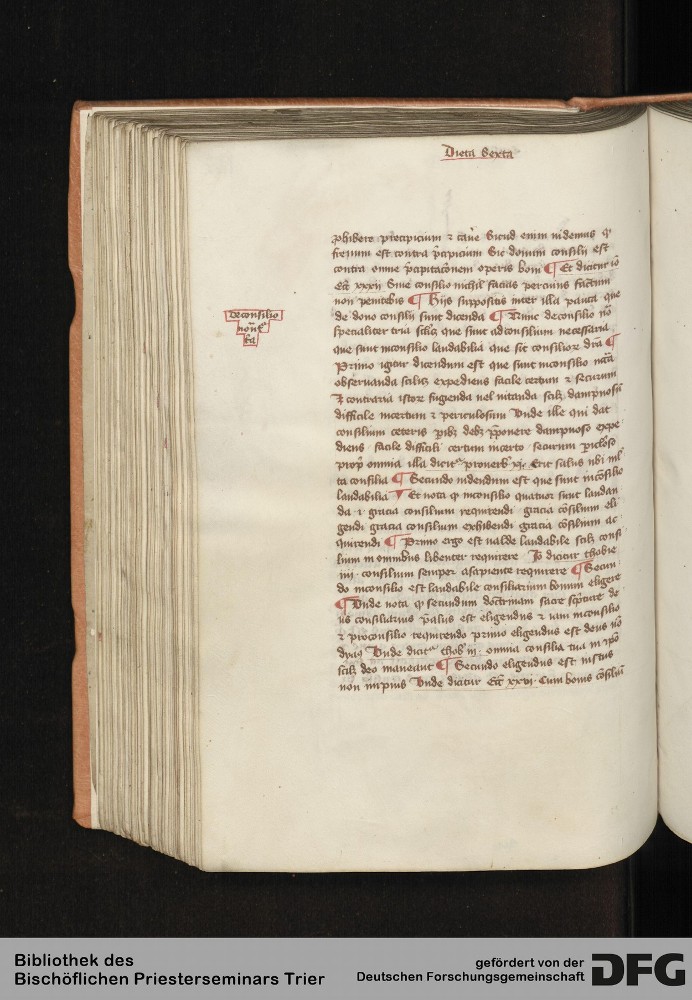 Dieta Sexta
ꝓhibere precipicium ⁊ caūe Sicud enim uidemus ꝙ
frenum est contra p̄cipicium Sic donum consilij est
contra omne p̄cipitacōnem operis boni ¶ Et dicitur iō
Ecc̄ xxxij Sine consilio nichil facias percuius factum
non penitebis ¶ Hijs suppositis inter illa pauca que
de dono consilij sunt dicenda ¶ Nunc de consilio nō
specialiter tria scilꝫ que sunt ad consilium necessaria
que sunt in consilio laudabilia que sit consilioꝝ dr̄a ¶
Primo igitur dicendum est que sunt in consilio
obseruanda scilicꝫ expediens facile certum ⁊ securum
⁊ contraria istoꝝ fugienda uel uitanda scilꝫ dampnosū
difficile incertum ⁊ periculosum Unde ille qui dat
consilium ceteris debꝫ p̄ponere dampnoso expe
diens facile difficili certum incerto securum
omnia illa dicit᷑ prouerb̄ xj Erit salus ubi ml̄
ta consilia ¶ Secundo uidendum est que sunt in cōsilio
laudabilia ¶ Et nota ꝙ in consilio quatuor sunt laudan
da ·i· gracia consilium requirendi gracia cōsilium eli
gendi gracia consilium exhibendi gracia cōsilium ac
quirendi ¶ Primo ergo est ualde laudabile scilꝫ consi
lium in omnibus libenter requirere Iō dicitur thobie
iiij consilium semper a sapiente requirere ¶ Secun
do in consilio est laudabile consiliarium bonum eligere
¶ Unde nota ꝙ secundum doctrinam sacre sc̄pture de
iis consiliarius p̄alus est eligendus ⁊ iam in consilio
⁊ pro consilio requirendo primo eligendus est deus
Unde dicit᷑ thob̄ iij omnia consilia tua in ip̄o
scilꝫ deo maneant ¶ Secundo eligendus est iustus
non impius Unde dicitur Ecc̄ xxvj Cum bonis cōsiliū
de consilio
nōnᷓ
ta
Bibliothek des
Bischöflichen Priesterseminars Trier
gefördert von der
Deutschen Forschungsgemeinschaft
DFG